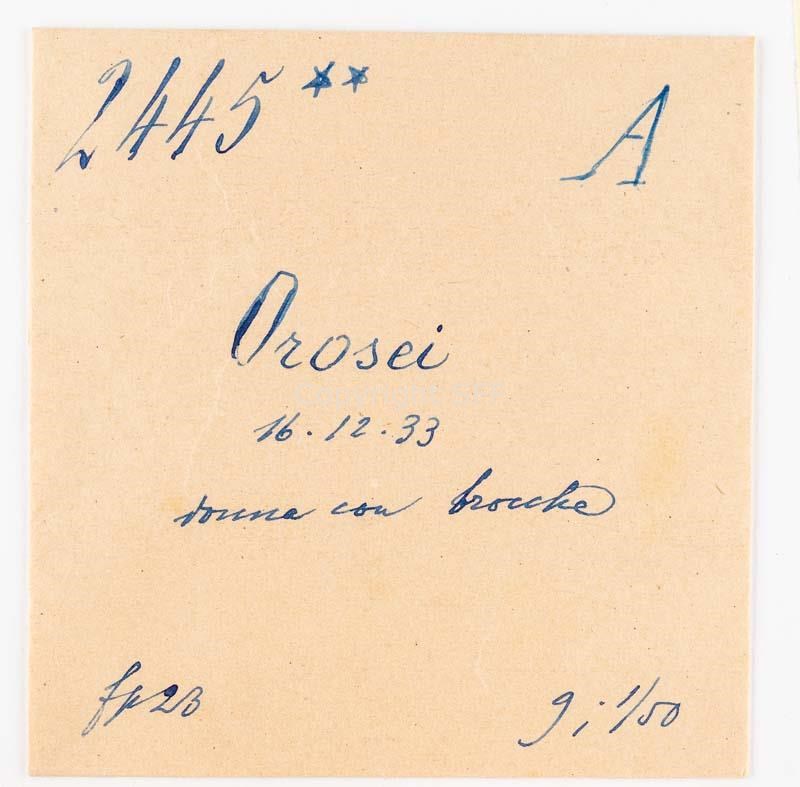 2445** A
Orosei
16.12.33
donna con brocche
fp23
9; 1/50